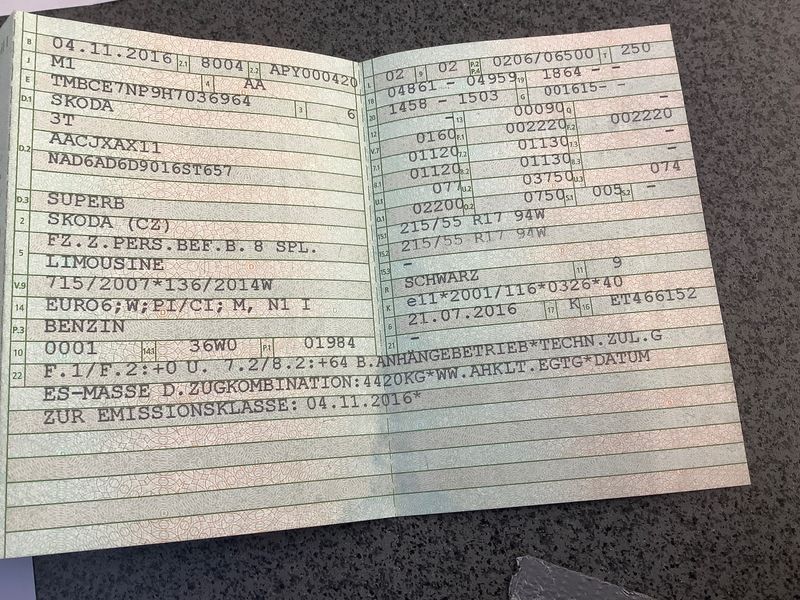 B 04.11.2016 2.1 8004 2.2 APY000420
J M1 4 AA
E TMBCE7NP9H7036964 3 6
D.1 SKODA
3T
D.2 AACJXAX11
NAD6AD6D9016ST657
D.3 SUPERB
2 SKODA (CZ)
5 FZ.Z.PERS.BEF.B. 8 SPL.
LIMOUSINE
V.9 715/2007*136/2014W
14 EURO6;W;PI/CI; M, N1 I
P.3 BENZIN
10 0001 14.1 36W0 P.1 01984
22 F.1/F.2:+0 U. 7.2/8.2:+64 B.ANHÄNGEBETRIEB*TECHN.ZUL.G
ES-MASSE D.ZUGKOMBINATION:4420KG*WW.AHKLT.EGTG*DATUM
ZUR EMISSIONSKLASSE: 04.11.2016*
L 02 9 02 P.2 P.4 0206/06500 T 250
18 04861 - 04959 19 1864 - -
20 1458 - 1503 G 001615- -
12 - 13 00090 Q -
V.7 0160 F.1 002220 F.2 002220
7.1 01120 7.2 01130 7.3 -
8.1 01120 8.2 01130 8.3 -
U.1 077 U.2 03750 U.3 074
O.1 02200 O.2 0750 S.1 005 S.2 -
15.1 215/55 R17 94W
15.2 215/55 R17 94W
15.3 -
R SCHWARZ 11 9
K e11*2001/116*0326*40
6 21.07.2016 17 K 16 ET466152
21 -